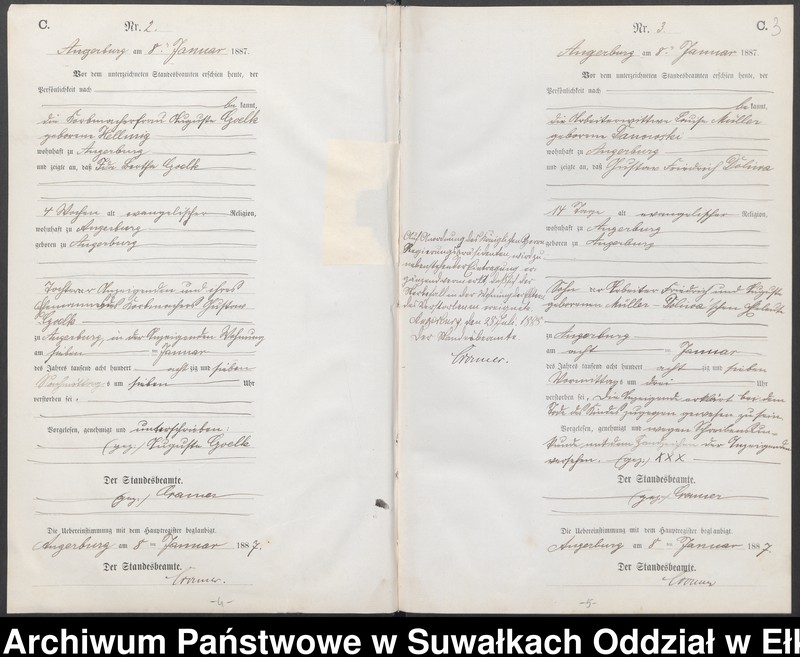 C.
Nr. 2.
Angerburg am 8ten Januar 1887.
Vor dem unterzeichneten Standesbeamten erschien heute, der
Persönlichkeit nach
be kannt,
die Korbmacherfrau Auguste Goelk
geborene Hellmig
wohnhaft zu Angerburg
und zeigte an, daß Ida Bertha Goelk
4 Wochen alt evangelischer Religion,
wohnhaft zu Angerburg
geboren zu Angerburg
Tochter der Anzeigenden und ihres
Ehemannes des Korbmachers Gustav
Goelk
zu Angerburg, in der Anzeigenden Wohnung
am sieben ten Januar
des Jahres tausend acht hundert acht zig und sieben
Vormittags um sieben Uhr
verstorben sei.
Vorgelesen, genehmigt und unterschrieben:
(gez.) Auguste Goelk
Der Standesbeamte.
(gez.) Cramer
Die Uebereinstimmung mit dem Hauptregister beglaubigt.
Angerburg am 8ten Januar 1887.
Der Standesbeamte.
Cramer.
-4-
C. 3
Nr. 3
Angerburg am 8ten Januar 1887.
Vor dem unterzeichneten Standesbeamten erschien heute, der
Persönlichkeit nach
be kannt,
die Arbeiterwittwe Louise Müller
geborene Danowski
wohnhaft zu Angerburg
und zeigte an, daß Gustav Friedrich Dolina
14 Tage alt evangelischer Religion,
wohnhaft zu Angerburg
geboren zu Angerburg
Sohn der Arbeiter Friedrich und Auguste
geborenen Müller - Dolina'schen Eheleute
zu Angerburg
am acht ten Januar
des Jahres tausend acht hundert acht zig und sieben
Vormittags um drei Uhr
verstorben sei. Die Anzeigende erklärt bei dem
Tode des Kindes zugegen gewesen zu sein.
Vorgelesen, genehmigt und wegen Schreibensun-
kunde mit dem Handzeichen der Anzeigenden
versehen. (gez.) XXX
Der Standesbeamte.
(gez.) Cramer
Die Uebereinstimmung mit dem Hauptregister beglaubigt.
Angerburg am 8ten Januar 1887.
Der Standesbeamte.
Cramer
-5-
Auf Anordnung des Königlichen Herrn
Regierungspräsidenten wird zu
nebenstehender Eintragung er-
gänzend vermerkt, daß
Sterbefall in der Wohnung der Eltern
des Verstorbenen ereignete.
Angerburg, den 25
Der Standesbeamte
Cramer.
Archiwum Państwowe w Suwałkach Oddział w Ełk